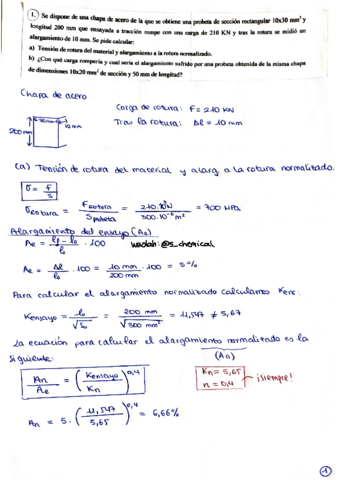 1. Se dispone de una chapa de acero de la que se obtiene una probeta de sección rectangular 10x30 mm² y
longitud 200 mm que ensayada a tracción rompe con una carga de 210 KN y tras la rotura se midió un
alargamiento de 10 mm. Se pide calcular:
a) Tensión de rotura del material y alargamiento a la rotura normalizado.
b) ¿Con qué carga rompería y cual sería el alargamiento sufrido por una probeta obtenida de la misma chapa
de dimensiones 10x20 mm² de sección y 50 mm de longitud?
Chapa de acero
Carga de rotura: F = 210 KN
Tras la rotura: Δl = 10 mm
200 mm
10 mm
(a) Tensión de rotura del material y alarg. a la rotura normalizado.
σ = F/S
σrotura = Frotura / Sprobeta = 210·10³N / 300·10⁻⁶ m² = 700 MPa
Alargamiento del ensayo (Ae)
Ae = lf - lo / lo · 100 wuolah: @s_chemical
Ae = Δl / lo · 100 = 10 mm / 200 mm · 100 = 5 %
Para calcular el alargamiento normalizado calculamos Kens:
Kensayo = lo / √So = 200 mm / √300 mm² = 11,547 ≠ 5,67
La ecuación para calcular el alargamiento normalizado es la
siguiente: (An)
An / Ae = (Kensayo / Kn)^0,4
Kn = 5,65
n = 0,4
¡siempre!
An = 5 · (11,547 / 5,65)^0,4 = 6,66%
1